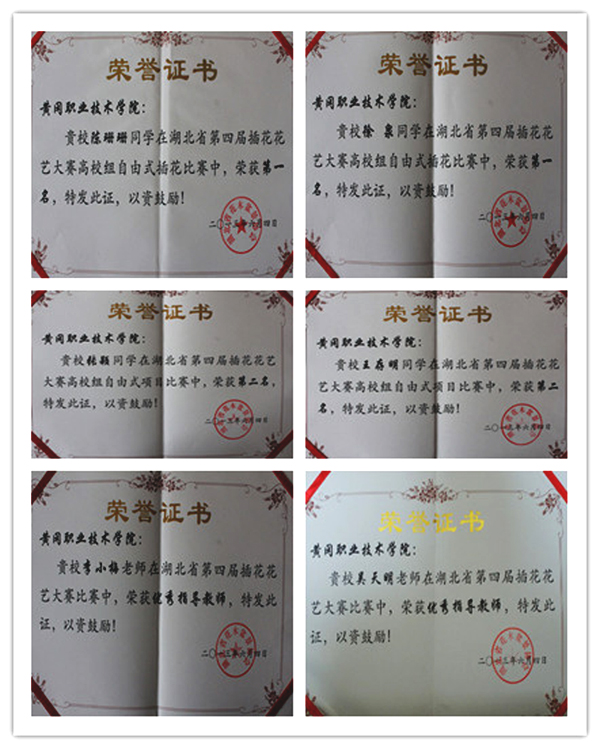 荣誉证书
黄冈职业技术学院：
贵校陈珊珊同学在湖北省第四届插花花
艺大赛高校组自由式插花比赛中，荣获第一
名，特发此证，以资鼓励！
二〇一三年六月四日
荣誉证书
黄冈职业技术学院：
贵校徐 泉同学在湖北省第四届插花花
艺大赛高校组自由式插花比赛中，荣获第一
名，特发此证，以资鼓励！
二〇一三年六月四日
荣誉证书
黄冈职业技术学院：
贵校张颖同学在湖北省第四届插花花艺
大赛高校组自由式项目比赛中，荣获第二名，
特发此证，以资鼓励！
二〇一三年六月四日
荣誉证书
黄冈职业技术学院：
贵校王存明同学在湖北省第四届插花花
艺大赛高校组自由式项目比赛中，荣获第二
名，特发此证，以资鼓励！
二〇一三年六月四日
荣誉证书
黄冈职业技术学院：
贵校李小梅老师在湖北省第四届插花花
艺大赛比赛中，荣获优秀指导教师，特发此
证，以资鼓励！
二〇一三年六月四日
荣誉证书
黄冈职业技术学院：
贵校吴天明老师在湖北省第四届插花花
艺大赛比赛中，荣获优秀指导教师，特发此
证，以资鼓励！
二〇一三年六月四日